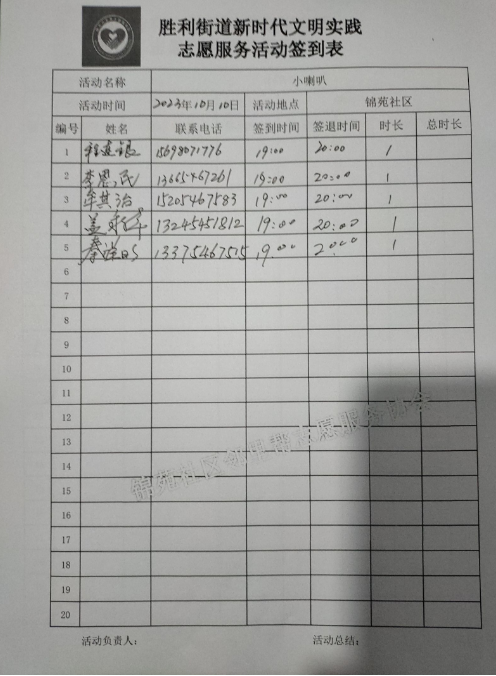 胜利街道新时代文明实践
志愿服务活动签到表
活动名称 小喇叭
活动时间 2023年10月10日 活动地点 锦苑社区
编号 姓名 联系电话 签到时间 签退时间 时长 总时长
1 15698071776 19:00 20:00 1
2 李恩民 13665467261 19:00 20:00 1
3 牟其治 15205467583 19:00 20:00 1
4 13245451812 19:00 20:00 1
5 13375467515 19:00 20:00 1
6
7
8
9
10
11
12
13
14
15
16
17
18
19
20
锦苑社区邻里帮志愿服务协会
活动负责人： 活动总结：